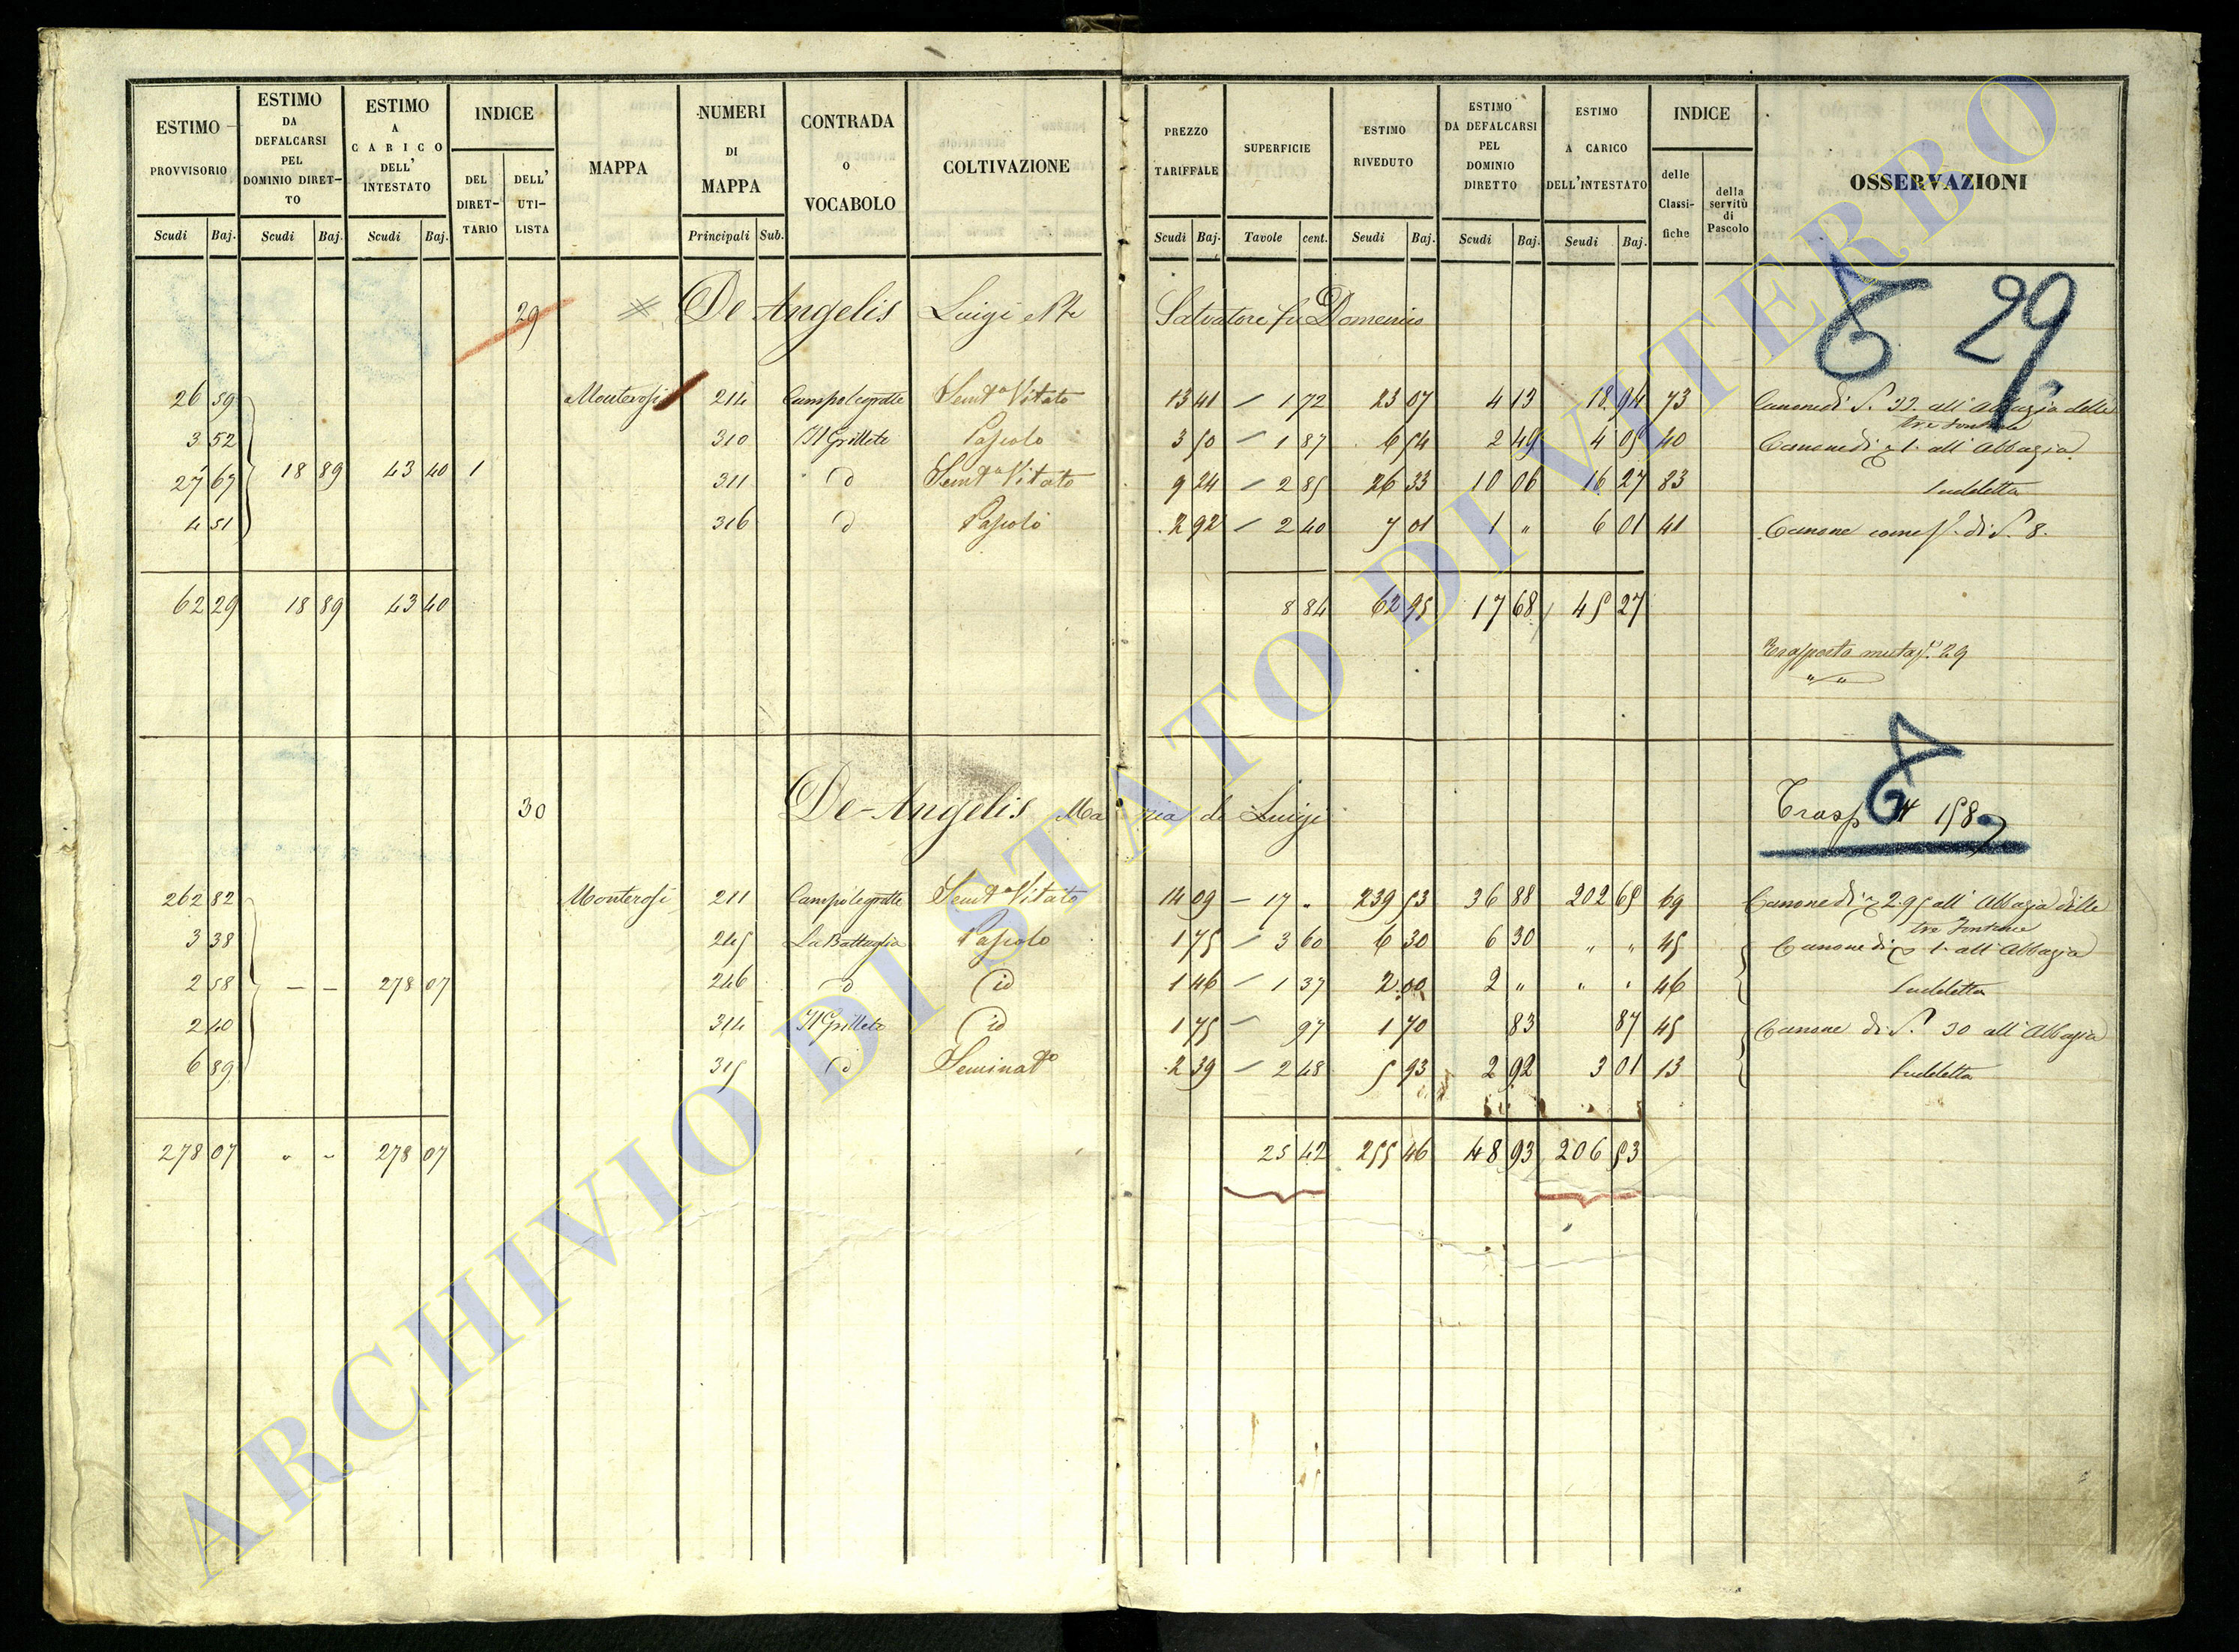 ESTIMO PROVVISORIO | ESTIMO DA DEFALCARSI PEL DOMINIO DIRETTO | ESTIMO A CARICO DELL' INTESTATO | INDICE | MAPPA | NUMERI DI MAPPA | CONTRADA O VOCABOLO | COLTIVAZIONE | PREZZO TARIFFALE | SUPERFICIE | ESTIMO RIVEDUTO | ESTIMO DA DEFALCARSI PEL DOMINIO DIRETTO | ESTIMO A CARICO DELL'INTESTATO | INDICE | OSSERVAZIONI
DEL DIRETTARIO | DELL' UTILISTA | delle Classifiche | della servitù di Pascolo
Scudi | Baj. | Scudi | Baj. | Scudi | Baj. | Principali | Sub. | Scudi | Baj. | Tavole | cent. | Scudi | Baj. | Scudi | Baj. | Scudi | Baj.
29 De Angelis Luigi Salvatore fu Domenico 29
26 59 Monterosi 214 Campolegratte Semto Vitato 13 41 1 72 23 07 4 13 18 94 73 Canone di S. 33. all' Abbazia delle tre Fontane
3 52 310 Il Grilleto Pascolo 3 50 1 87 6 54 2 49 4 05 40 Canone di 1. all' Abbazia
27 67 18 89 43 40 1 311 d Semto Vitato 9 24 2 85 26 33 10 06 16 27 83 Suddetta
4 51 316 d Pascolo 2 92 2 40 7 01 1 " 6 01 41 Canone come s. di S. 8.
62 29 18 89 43 40 8 84 62 95 17 68 45 27
Trasporto 29
30 De-Angelis Maria di Luigi Trasp 158
262 82 Monterosi 211 Campolegratte Semto Vitato 14 09 17 " 239 53 36 88 202 65 69 Canone di 2.95 all' Abbazia delle tre Fontane
3 38 245 La Battaglia Pascolo 1 75 3 60 6 30 6 30 " " 45 Canone di 1. all' Abbazia
2 58 - - 278 07 246 d id 1 46 1 37 2.00 2 " " " 46 Suddetta
2 40 314 Il Grilleto id 1 75 97 1 70 83 87 45 Canone di S. 30 all' Abbazia
6 89 315 d Seminato 2 39 2 48 5 93 2 92 3 01 13 Suddetta
278 07 " - 278 07 25 42 255 46 48 93 206 53
ARCHIVIO DI STATO DI VITERBO